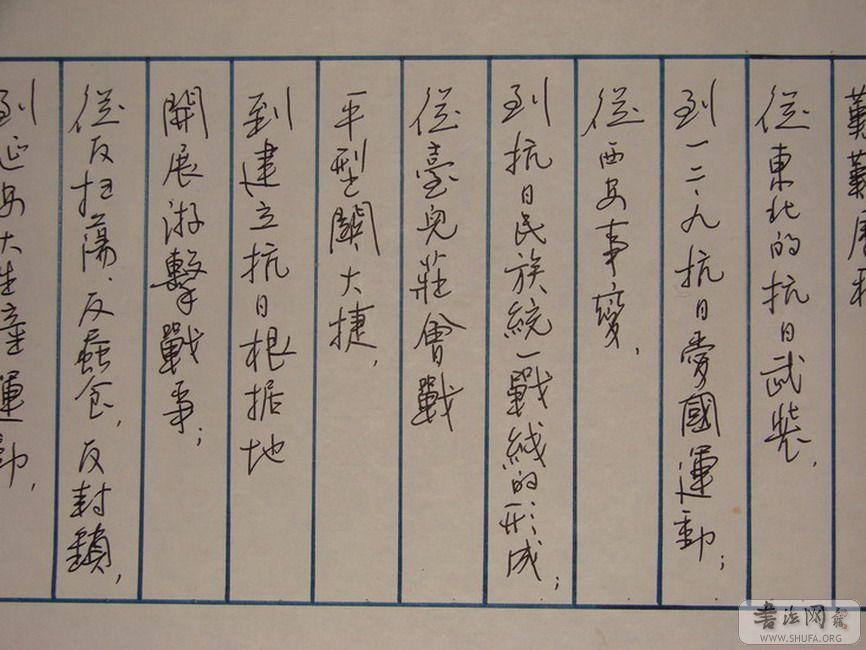 艱難歷程
從東北的抗日武裝，
到一二·九抗日愛國運動；
從西安事變，
到抗日民族統一戰綫的形成；
從臺兒莊會戰
平型關大捷，
到建立抗日根据地
開展游擊戰事；
從反扫蕩、反蚕食，反封鎖，
到延安大生產運動，
書法网
WWW.SHUFA.ORG